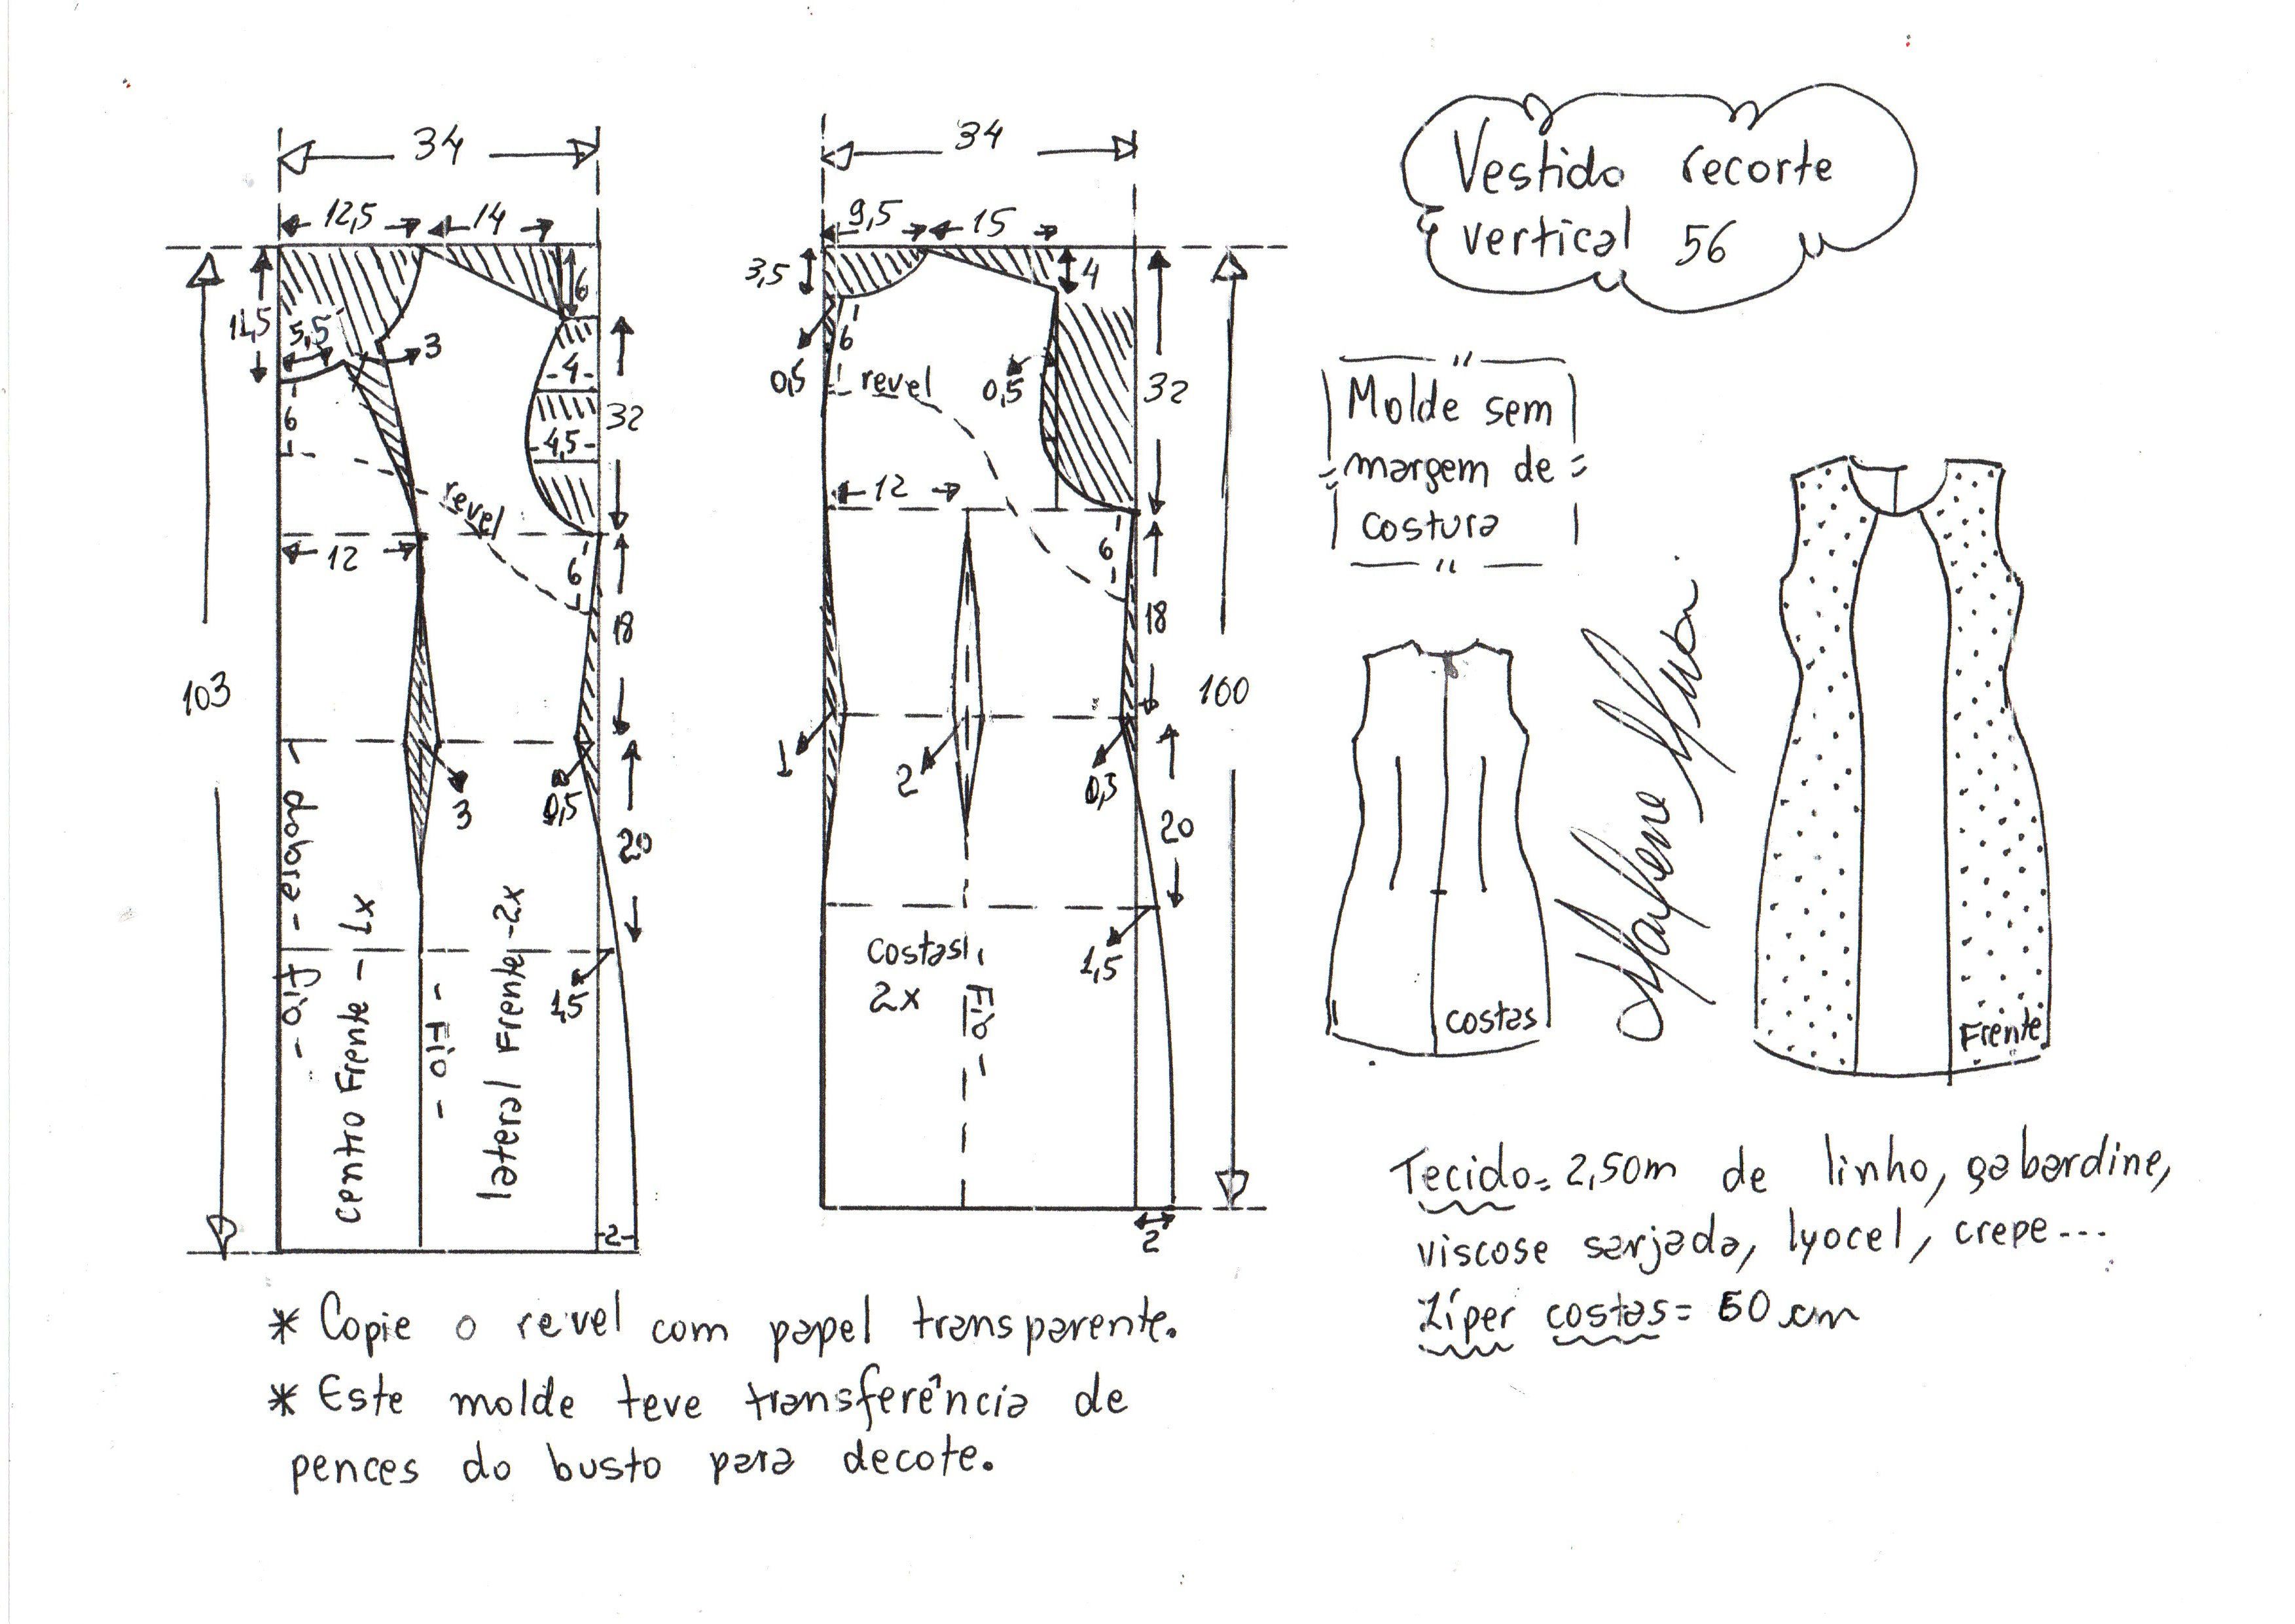 34
12,5
14
11,5
5,5
3
6
4
4,5
32
6
revel
12
6
18
103
3
0,5
20
dobra -
Fio -
centro Frente - 1x
- Fio -
lateral Frente - 2x
1,5
2
34
9,5
15
3,5
4
6
0,5
revel
0,5
32
12
6
18
100
1
2
0,5
20
Costas
2x
Fio -
1,5
2
Vestido recorte
vertical 56
Molde sem
margem de
costura
costas
Frente
Tecido= 2,50m de linho, gabardine,
viscose sarjada, lyocel, crepe---
Zíper costas= 60 cm
* Copie o revel com papel transparente.
* Este molde teve transferência de
pences do busto para decote.